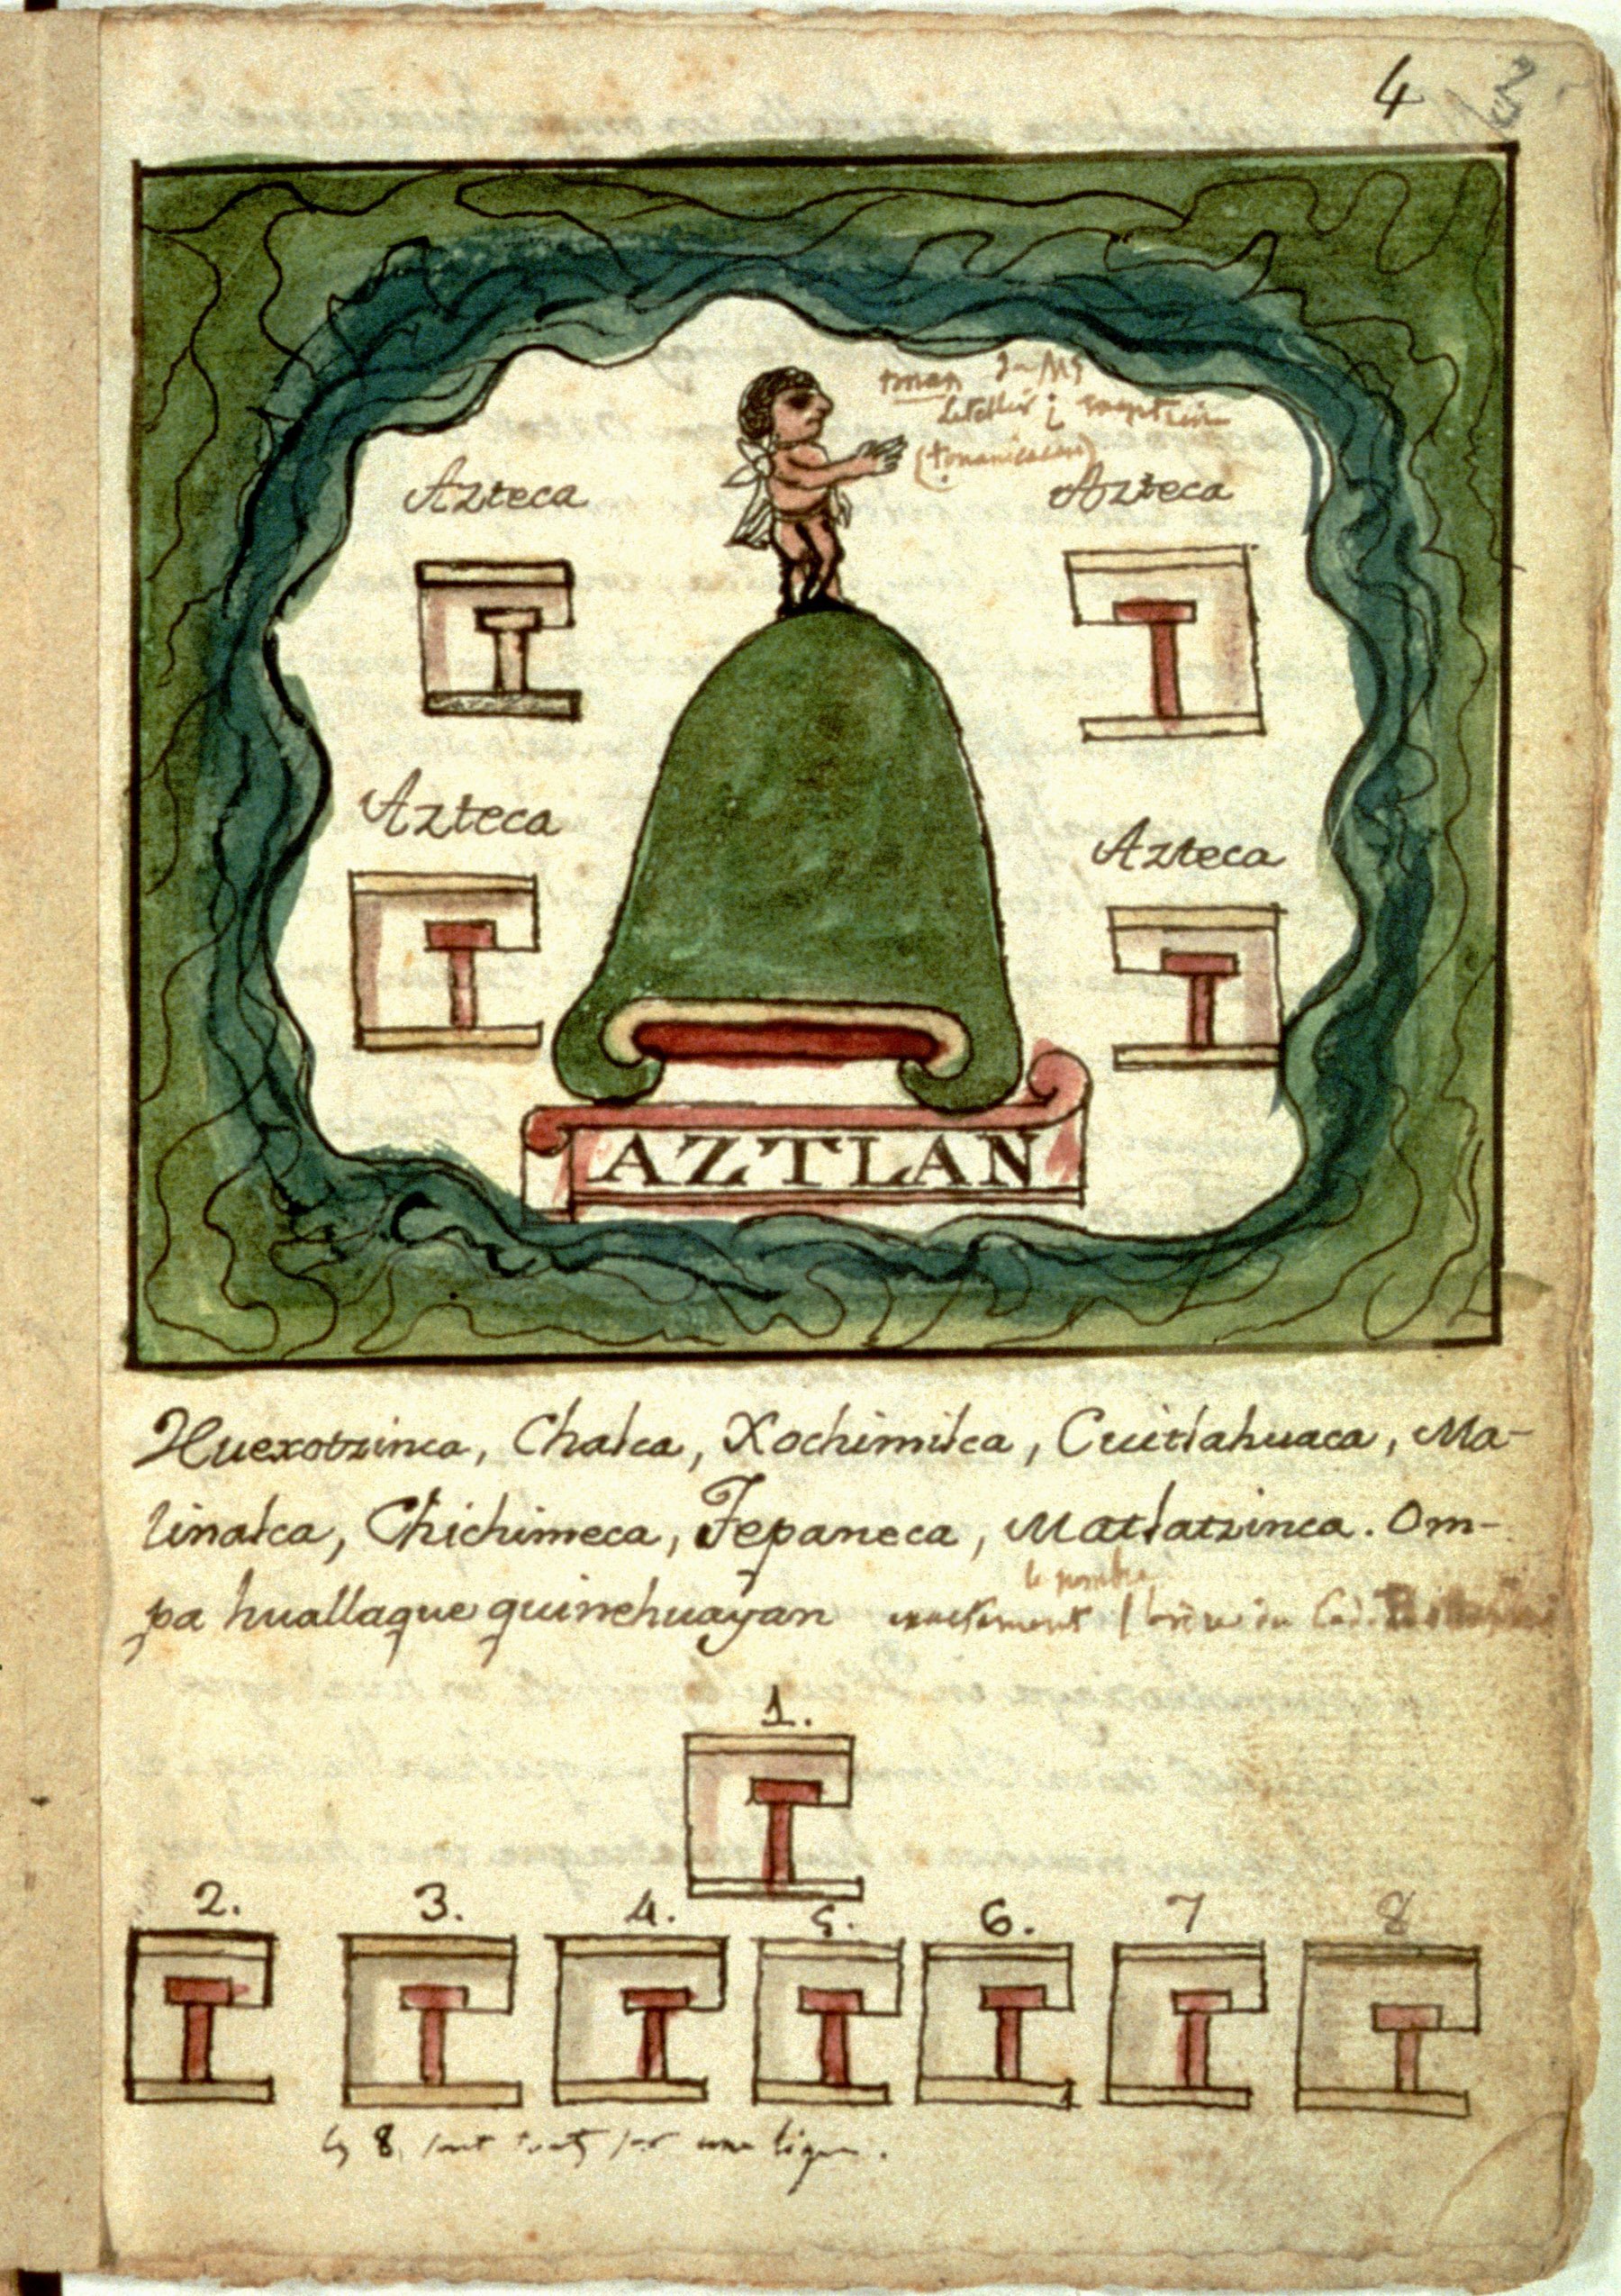 4 3
Azteca
Azteca
Azteca
Azteca
AZTLAN
Huexotzinca, Chalca, Xochimilca, Cuitlahuaca, Ma-
linalca, Chichimeca, Tepaneca, Matlatzinca. Om-
pa huallaque quinehuayan
1.
2. 3. 4. 5. 6. 7 8
8 sont tous par une ligne.